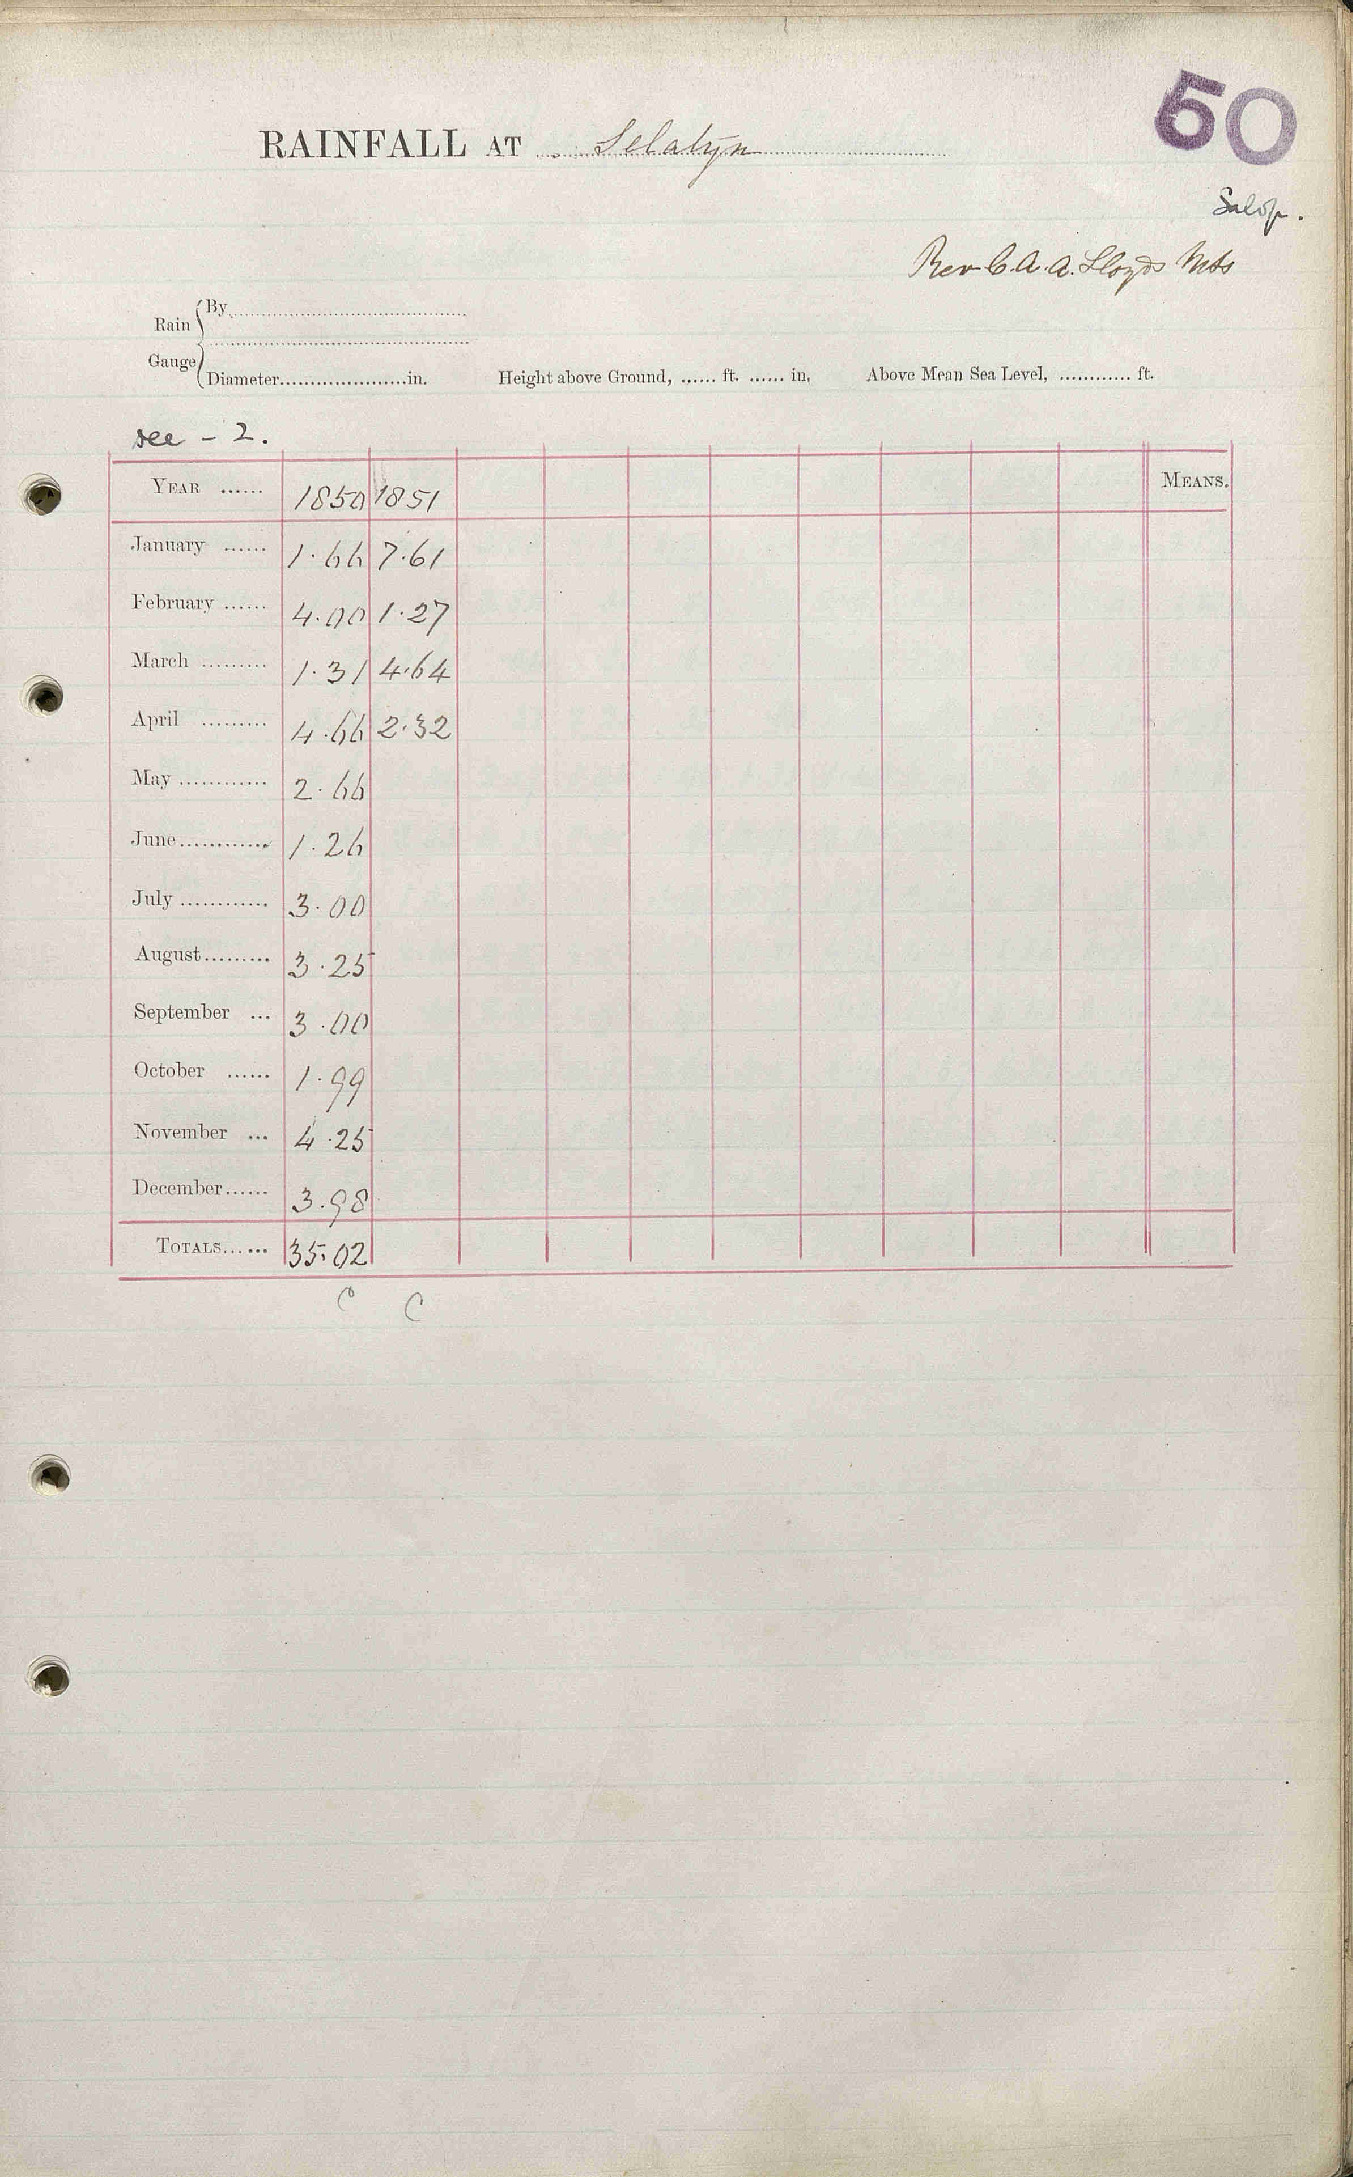 50
RAINFALL AT Selatyn
Salop.
Rev C. A. A. Lloyds Mss
Rain Gauge { By
Diameter.....................in. Height above Ground, ...... ft. ...... in. Above Mean Sea Level, ............ ft.
see - 2.
YEAR ...... 1850 1851 MEANS.
January ...... 1.66 7.61
February ...... 4.00 1.27
March ......... 1.31 4.64
April ......... 4.66 2.32
May ............ 2.66
June............ 1.26
July ............ 3.00
August......... 3.25
September ... 3.00
October ...... 1.99
November ... 4.25
December...... 3.98
TOTALS...... 35.02
C C